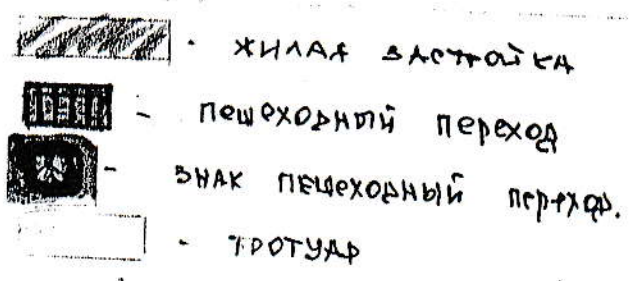 - жилая застройка
- пешеходный переход
- знак пешеходный переход.
- тротуар